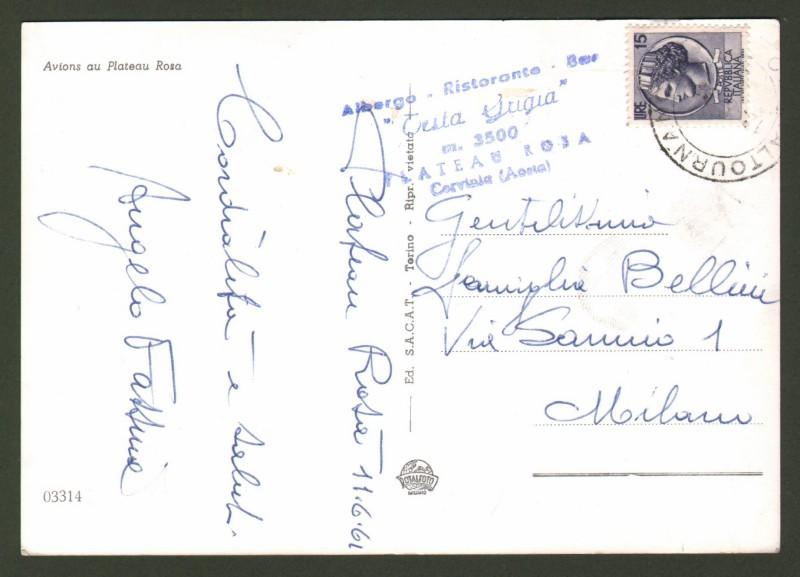 Avions au Plateau Rosa
Albergo - Ristorante - Bar
"Testa Grigia"
m. 3500
PLATEAU ROSA
Cervinia (Aosta)
15
LIRE
REPVBBLICA
ITALIANA
VALTOURNA
Plateau Rosa 11.6.61
Cordialità e saluti
Angelo
Ed. S.A.C.A.T. - Torino - Ripr. vietata
Gentilissima
Famiglia Bellini
Via Sannio 1
Milano
ROTALFOTO
MILANO
03314